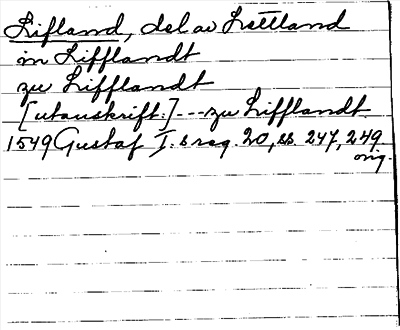 Lifland, del av Lettland
in Lifflandt
zu Lifflandt
[utanskrift:] --- zu Lifflandt.
1549 Gustaf I:s reg. 20, ss. 247, 249
orig.